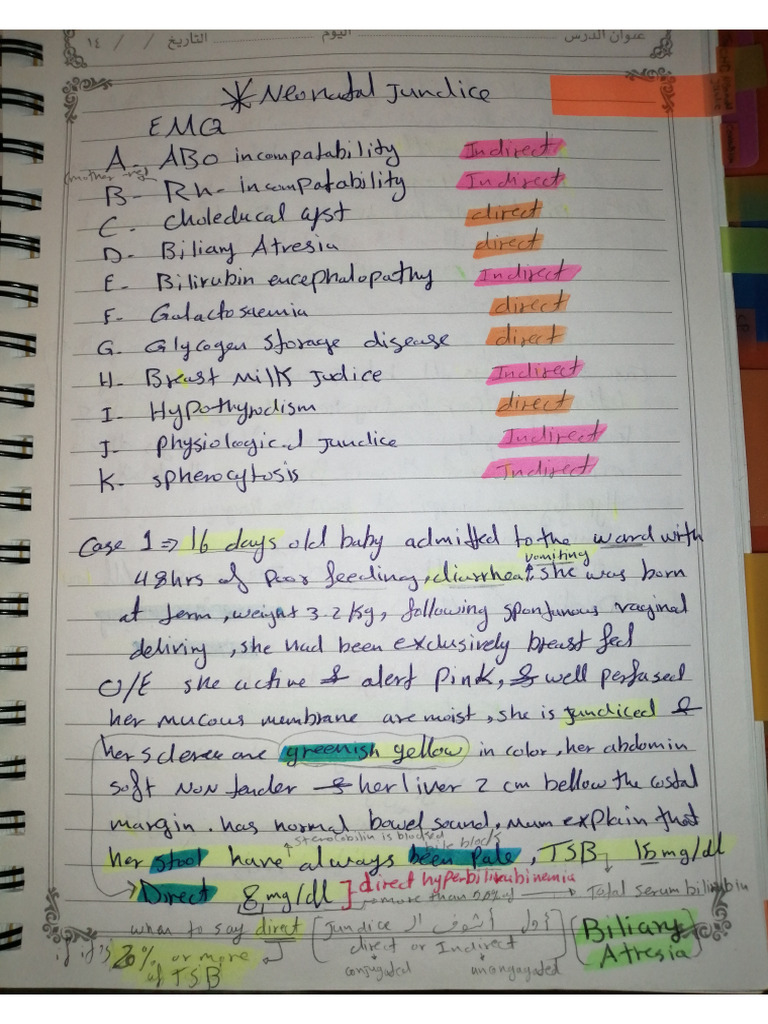 عنوان الدرس اليوم التاريخ / / ١٤
* Neonatal Jundice
EMQ
A - ABO incompatability Indirect
(mother -ve)
B - Rh- incompatability Indirect
C - choleducal cyst direct
D - Biliary Atresia direct
E - Bilirubin encephalopathy Indirect
F - Galactosaemia direct
G - Glycogen storage disease direct
H - Breast Milk Judice Indirect
I - Hypothyrodism direct
J - physiologicd Jundice Indirect
K - spherocytosis Indirect
Case 1 ⇒ 16 days old baby admitted to the ward with
vomiting
48hrs of poor feeding, diarrhea↑, she was born
at term, weight 3.2 Kg, following spontunous vaginal
deliviny, she had been exclusively breast fed
O/E she active & alert pink, & well perfused
her mucous membrane are moist, she is jundiced &
her sclerea are greenish yellow in color, her abdomin
soft Non tender & her liver 2 cm bellow the costal
margin. has normal bowel sound. Mum explain that
↑ stercobilin is blocked bile block
her stool have always been pale, TSB 15 mg/dl
→ Direct 8 mg/dl } direct hyperbilirubinemia
more than 20% of → Total serum bilirubin
when to say direct [ أول أشوف ال Jundice
direct or Indirect ] [ Biliary Atresia ]
if it's 20% or more
of TSB
conjugated unconjugated